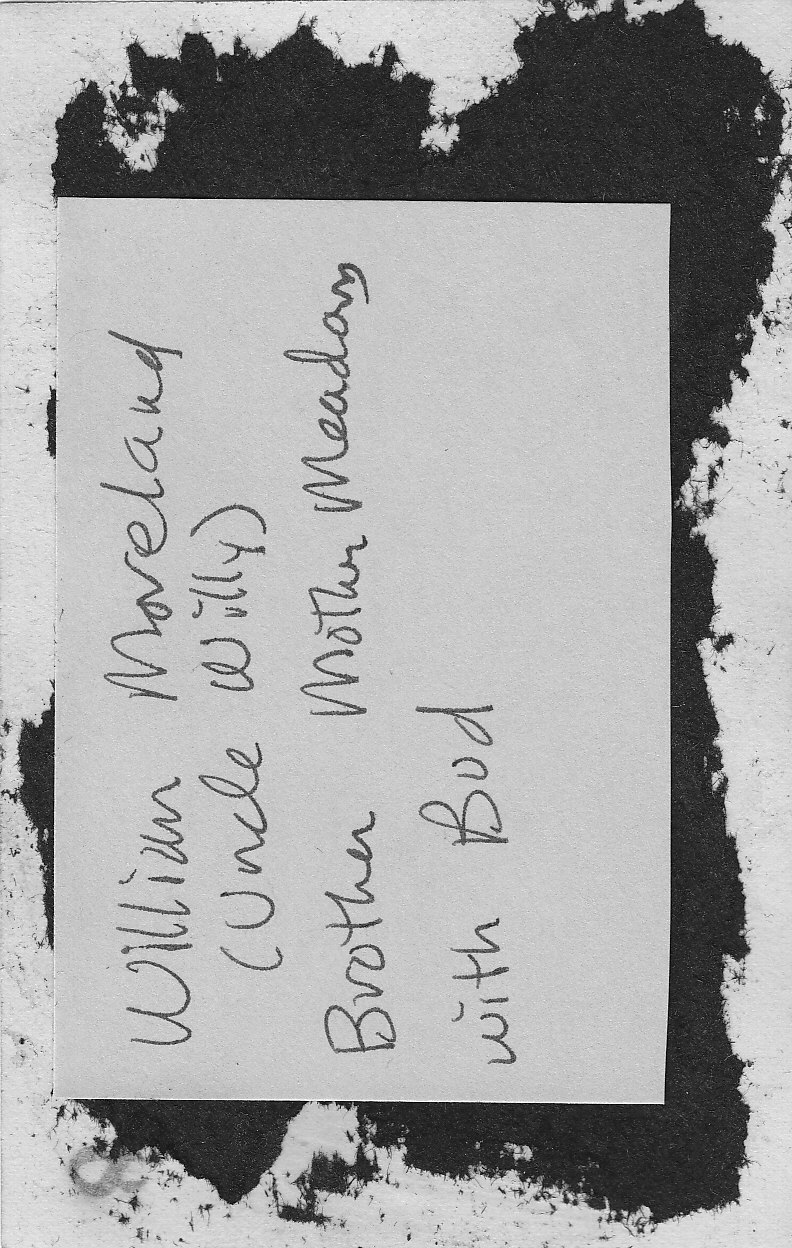 William Moreland
(Uncle Willy)
Brother Mother Meadows
with Bud